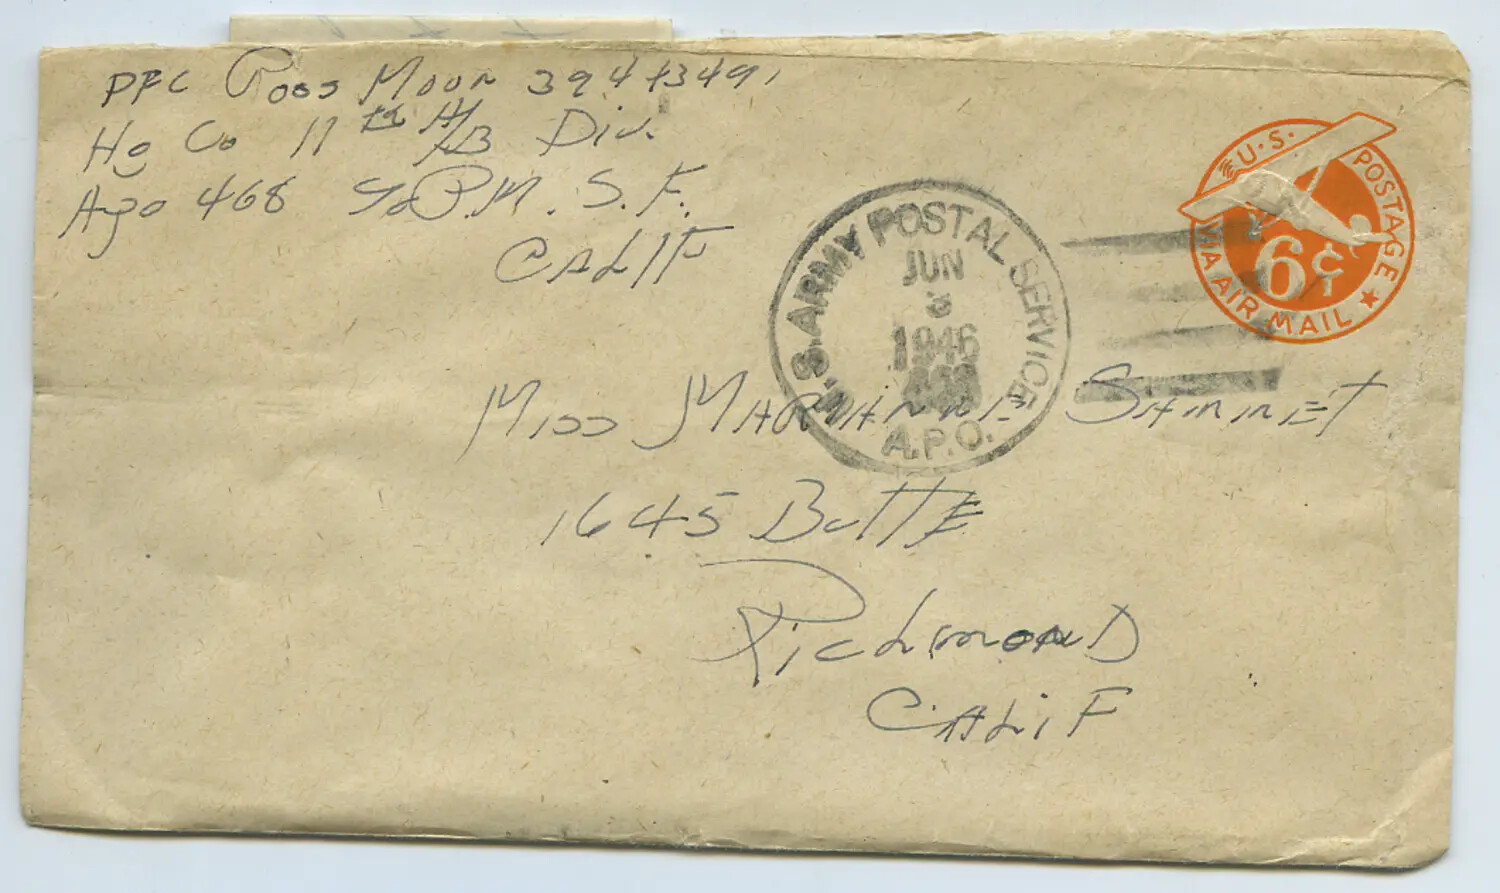 PFC Ross Moon 39443491
Hq Co 11th A/B Div.
Apo 468 ℅ P.M. S.F.
CALIF
U.S. POSTAGE
6¢
VIA AIR MAIL
U.S. ARMY POSTAL SERVICE
JUN
3
1946
468
A.P.O.
Miss MARIANNE SAMMET
1645 ButtE
Richmond
CALIF